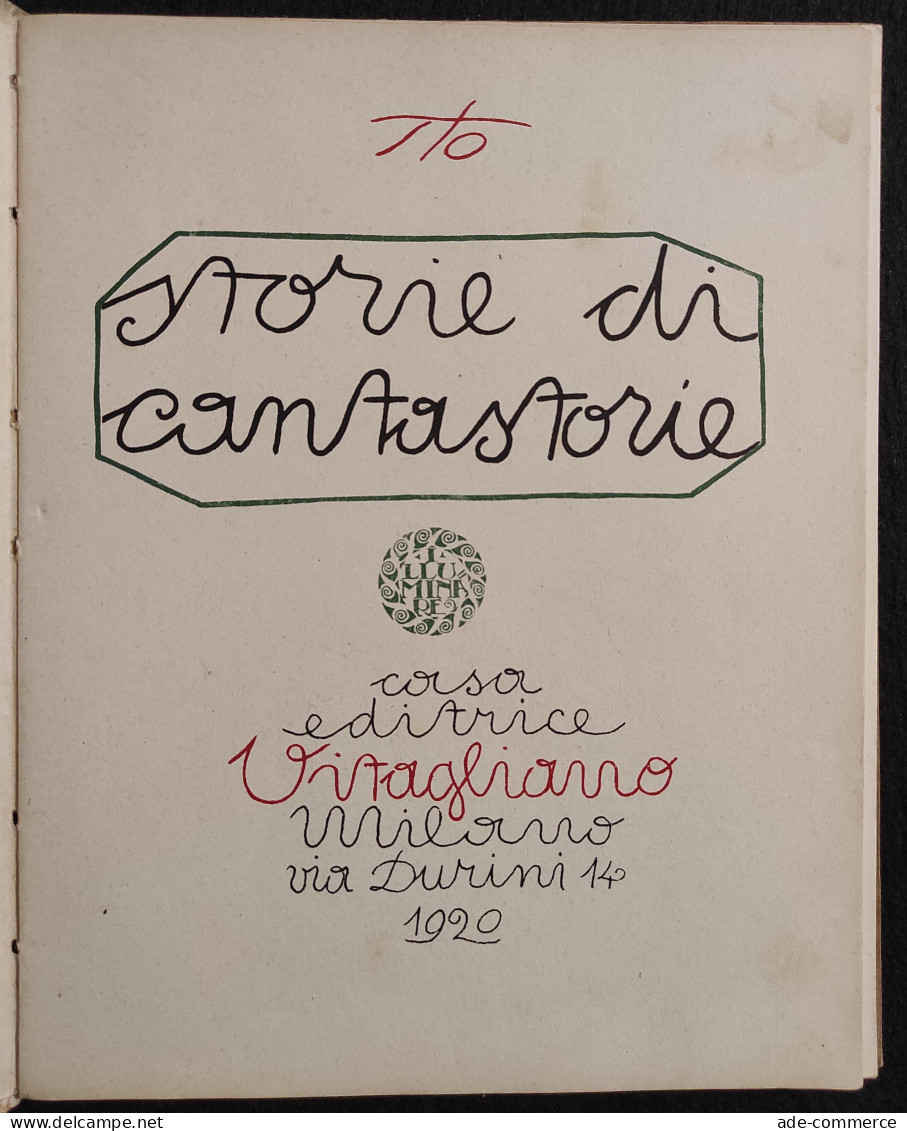 Sto
storie di
cantastorie
I
LLU
MINA
RE
casa
editrice
Vitagliano
Milano
via Durini 14
1920
ade-commerce